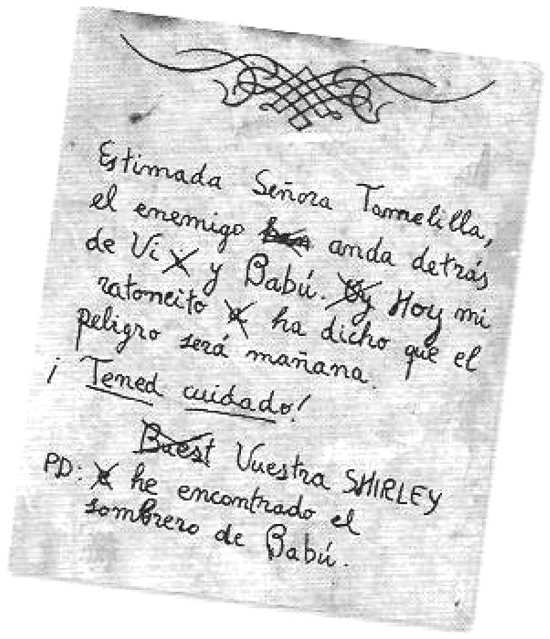 Estimada Señora Tomelilla,
el enemigo anda detrás
de Vi y Babú. Hoy mi
ratoncito ha dicho que el
peligro será mañana.
¡Tened cuidado!
Vuestra SHIRLEY
PD: he encontrado el
sombrero de Babú.